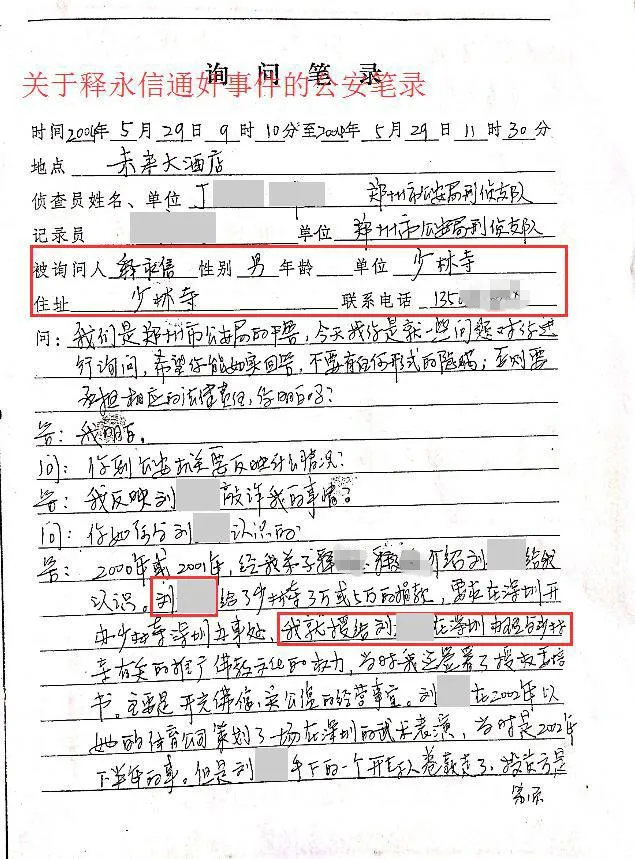 询问笔录
关于释永信通奸事件的公安笔录
时间2004年5月29日9时10分至2004年5月29日11时30分
地点 未来大酒店
侦查员姓名、单位 丁 郑州市公安局刑侦支队
记录员 单位 郑州市公安局刑侦支队
被询问人 释永信 性别 男 年龄 单位 少林寺
住址 少林寺 联系电话 135
问：我们是郑州市公安局的干警，今天找你是就一些问题对你进
行询问，希望你能如实回答，不要有任何形式的隐瞒；否则要
承担相应的法律责任，你明白吗？
答：我明白。
问：你到公安机关要反映什么情况？
答：我反映刘 敲诈我的事情。
问：你如何与刘 认识的
答：2000年或2001年，经我弟子释 介绍刘 给我
认识。刘 给了少林寺3万或5万的捐款，要在深圳开
办少林寺深圳办事处，我就授给刘 在深圳办理与少林
寺有关的推广佛教文化的权力，当时我还签署了授权委托
书。主要是开光佛像、卖公园的经营事宜。刘 在2002年以
她的体育公司策划了一场在深圳的武术表演，当时是2002年
下半年的事。但是刘 手下的一个开车人卷款走了，投资方是